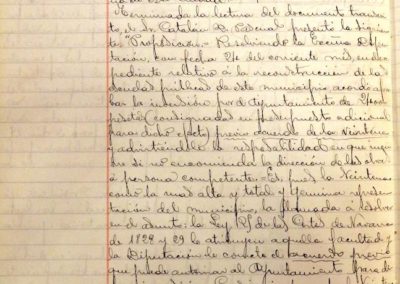 Terminada la lectura del documento transcri-
to, el Sr. Catalán D. Pascual presentó la siguien-
te "Proposición = Resolviendo la Excma Dipu-
tación, con fecha 24 del corriente mes, un ex-
pediente relativo á la reconstrucción de las
escuelas públicas de este municipio acordó apro-
bar la inversión por el Ayuntamiento de
pesetas (consignadas en presupuesto adicional
para dicho efecto) previo acuerdo de la Veintena
y advirtiéndole la responsabilidad en que incur-
re si no encomienda la dirección de las obras
á persona competente = Es pues la Veintena
como la mas alta y total y genuina represen-
tación del municipio, la llamada á resolver
en el asunto: la Ley de las Cortes de Navarra
de 1828 y 29 le atribuyen aquella facultad y
la Diputación le comete el acuerdo previo
que puede autorizar al Ayuntamiento para